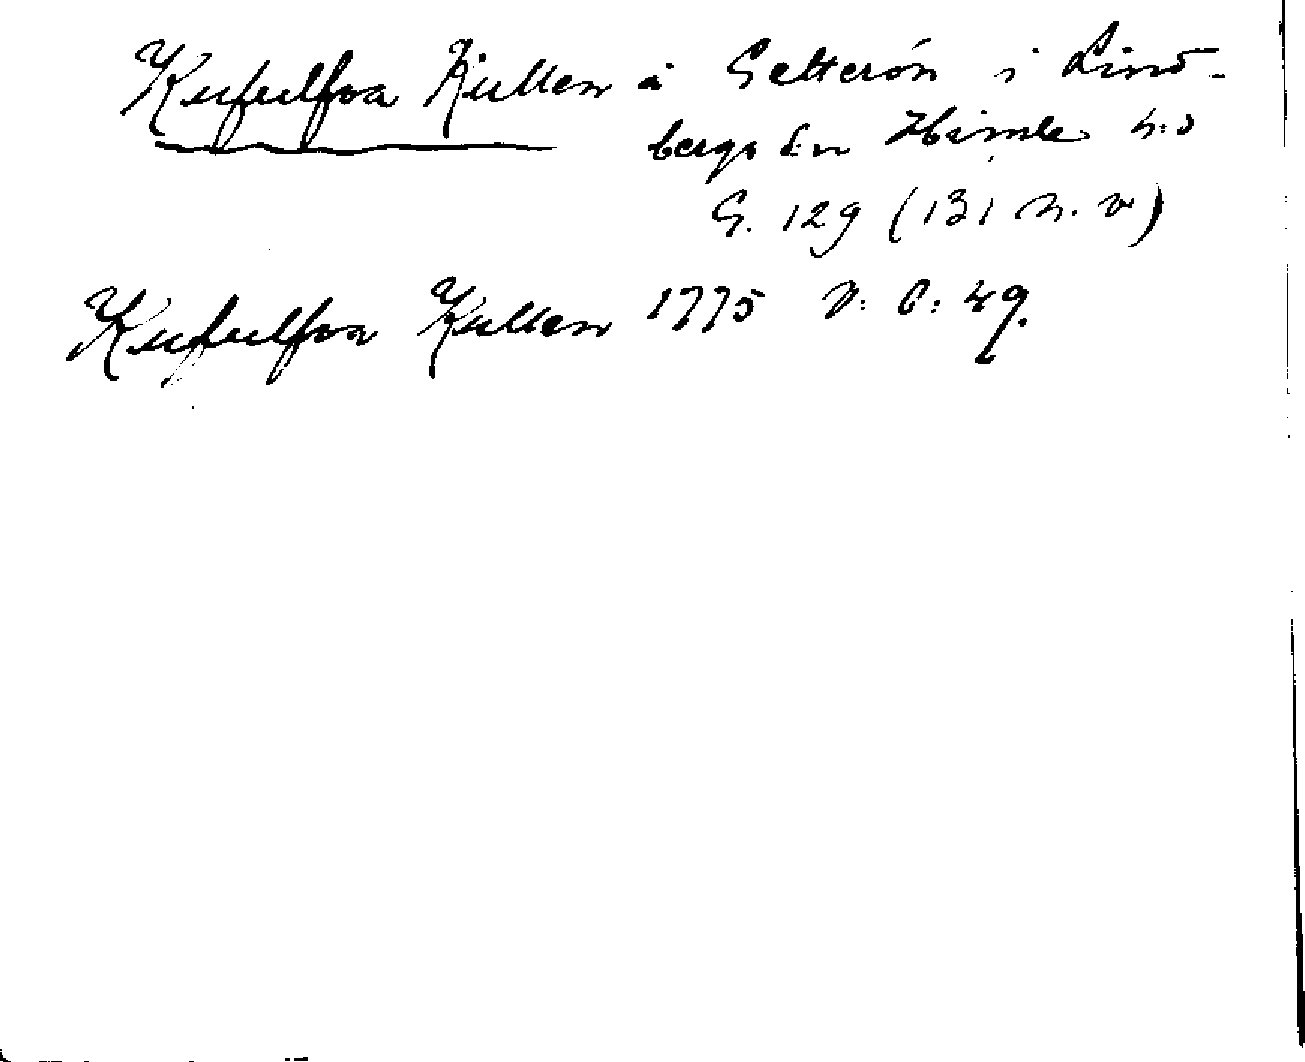 Kufulfva Kullen å Getterön i Lind-
bergs sn Himle h:d
G. 129 (131 n. v)
Kufulfva Kullen 1775 N: O: 49.